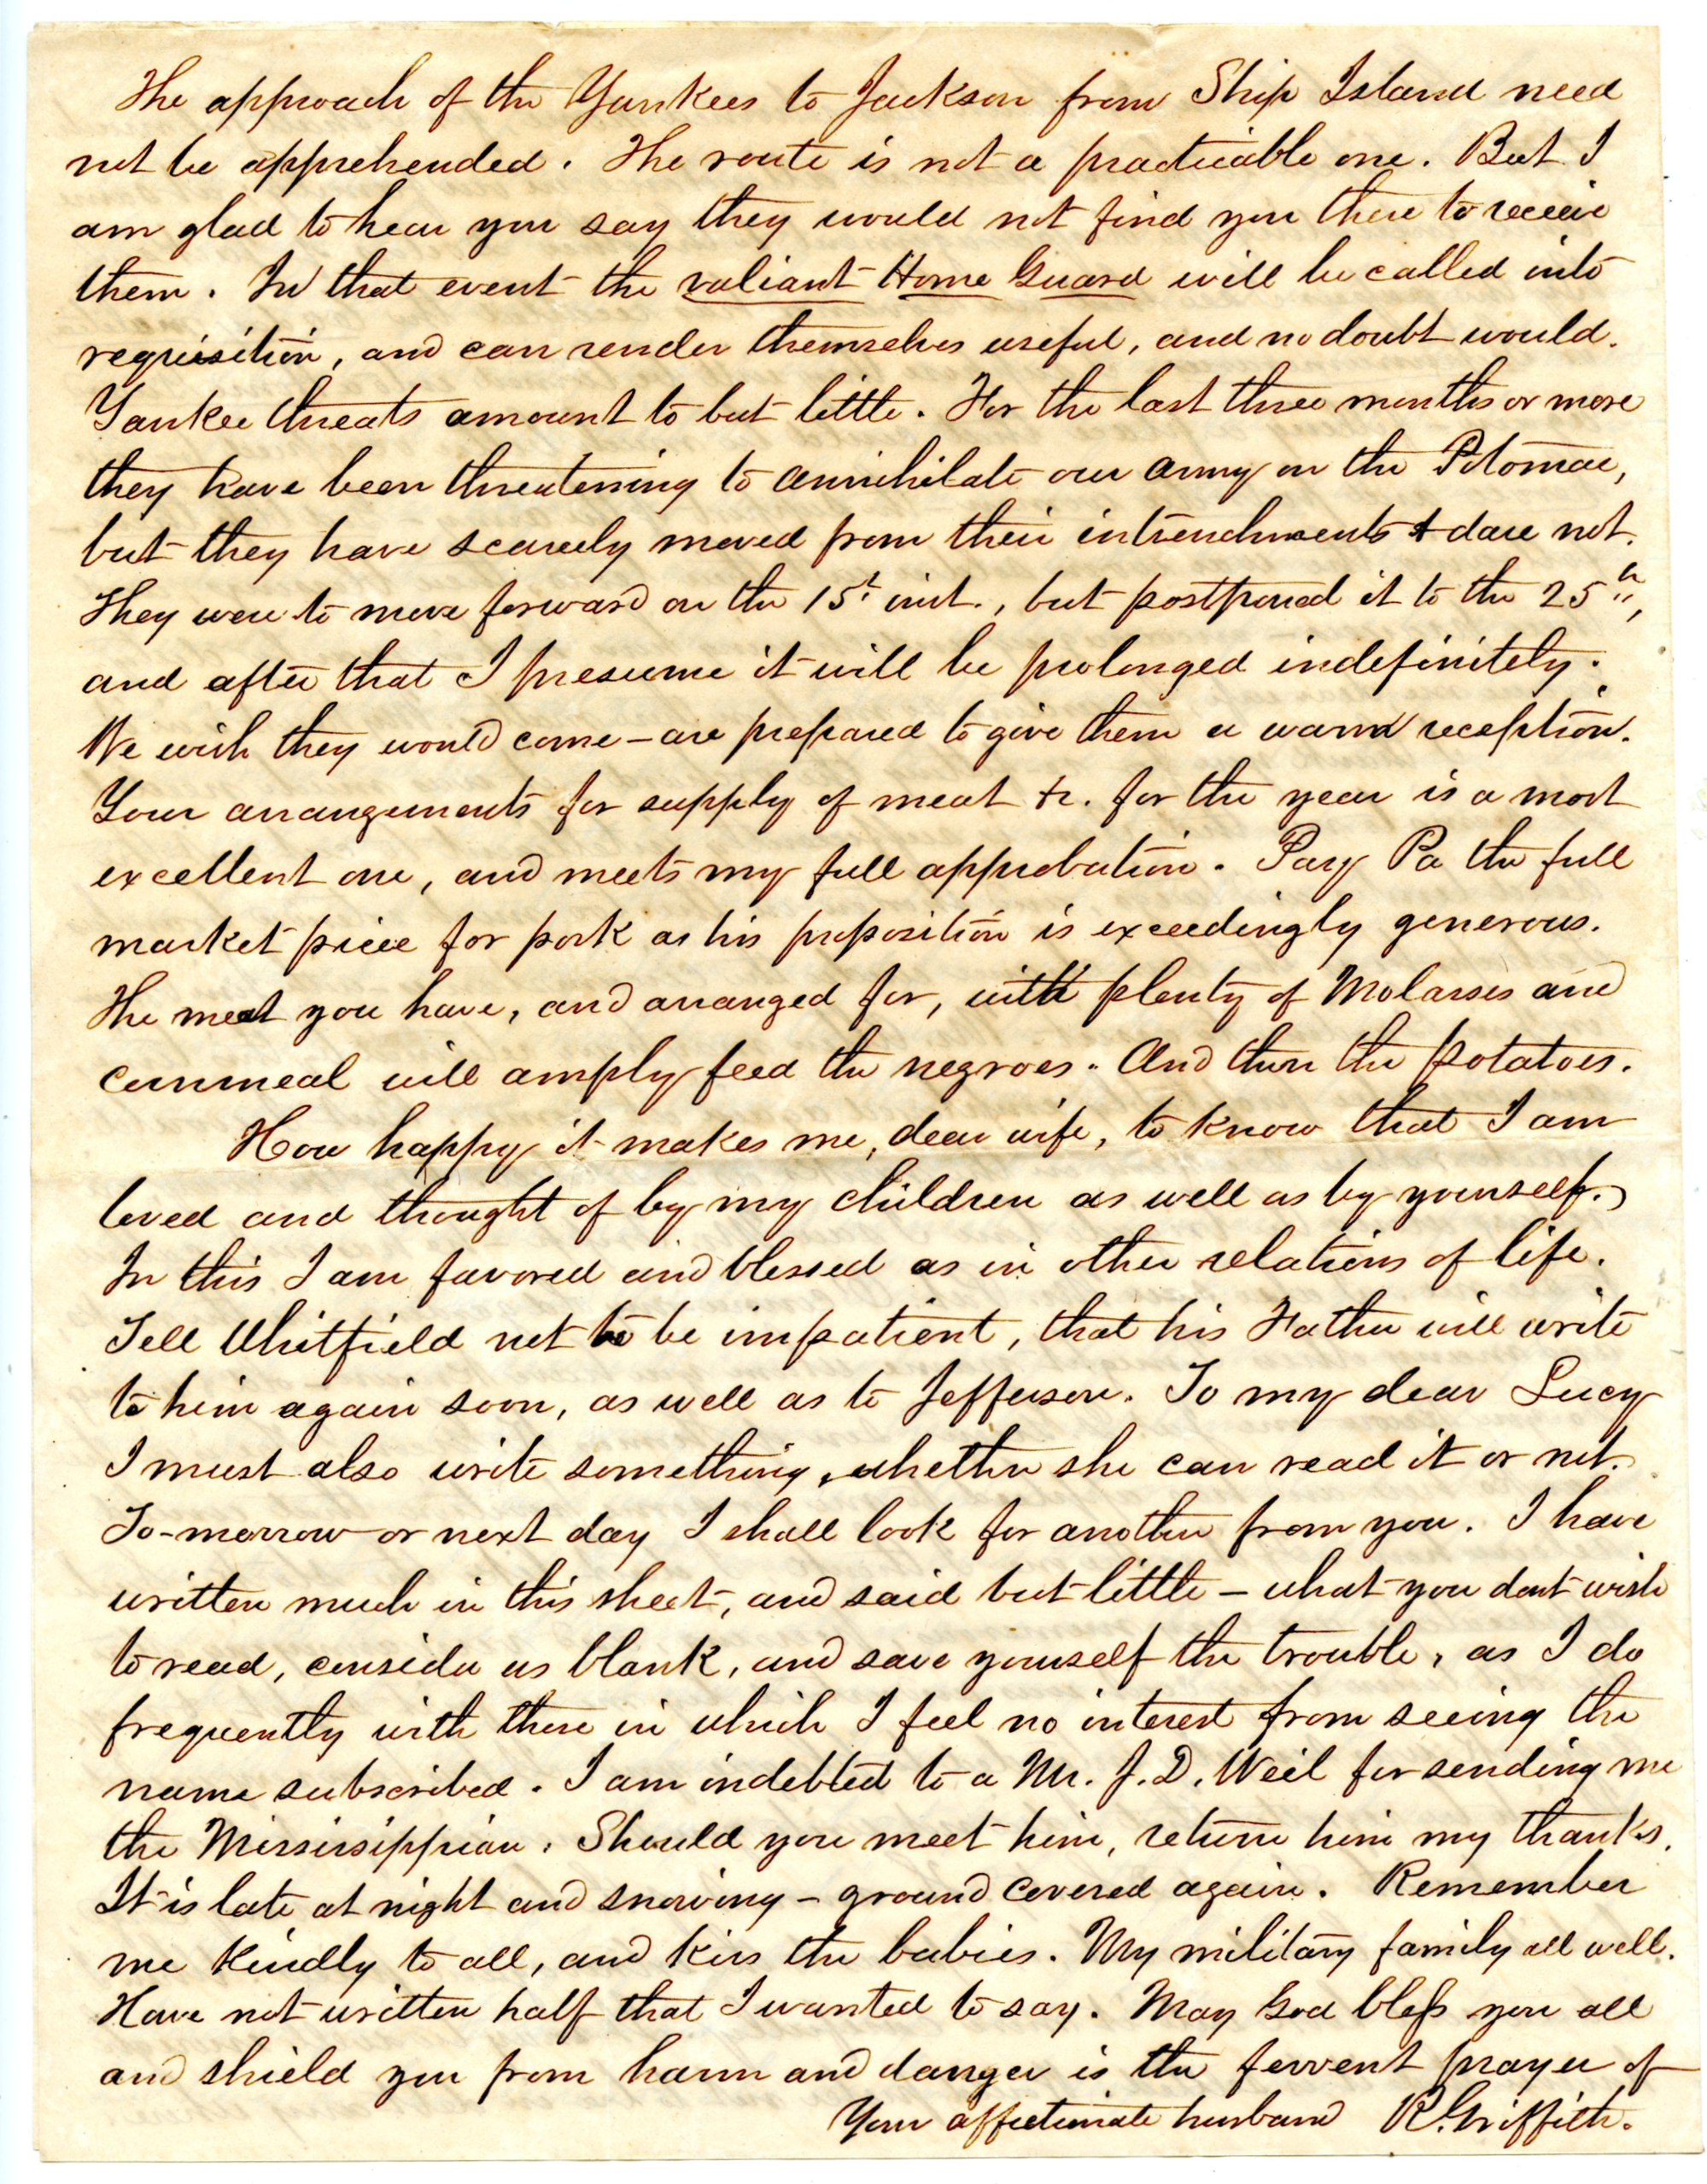 The approach of the Yankees to Jackson from Ship Island need
not be apprehended. The route is not a practicable one. But I
am glad to hear you say they would not find you there to receive
them. In that event the valiant Home Guard will be called into
requisition, and can render themselves useful, and no doubt would.
Yankee threats amount to but little. For the last three months or more
they have been threatening to annihilate our army on the Potomac,
but they have scarcely moved from their intrenchments & dare not.
They were to move forward on the 15th inst., but postponed it to the 25th,
and after that I presume it will be prolonged indefinitely.
We wish they would come - are prepared to give them a warm reception.
Your arrangements for supply of meat &c. for the year is a most
excellent one, and meets my full approbation. Pay Pa the full
market price for pork as his proposition is exceedingly generous.
The meat you have, and arranged for, with plenty of Molasses and
cornmeal will amply feed the negroes. And then the potatoes.
How happy it makes me, dear wife, to know that I am
loved and thought of by my children as well as by yourself.
In this I am favored and blessed as in other relations of life.
Tell Whitfield not to be impatient, that his Father will write
to him again soon, as well as to Jefferson. To my dear Lucy
I must also write something, whether she can read it or not.
To-morrow or next day I shall look for another from you. I have
written much in this sheet, and said but little - what you dont wish
to read, consider as blank, and save yourself the trouble, as I do
frequently with those in which I feel no interest from seeing the
name subscribed. I am indebted to a Mr. J. D. Weil for sending me
the Mississippian. Should you meet him, return him my thanks.
It is late at night and snowing - ground covered again. Remember
me kindly to all, and kiss the babies. My military family all well.
Have not written half that I wanted to say. May God bless you all
and shield you from harm and danger is the fervent prayer of
Your affectionate husband R. Griffith.